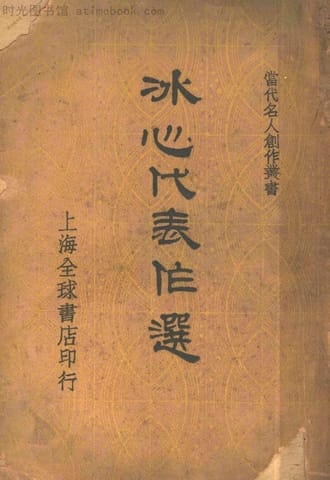 时光图书馆 atimebook.com
當代名人創作叢書
冰心代表作選
上海全球書店印行